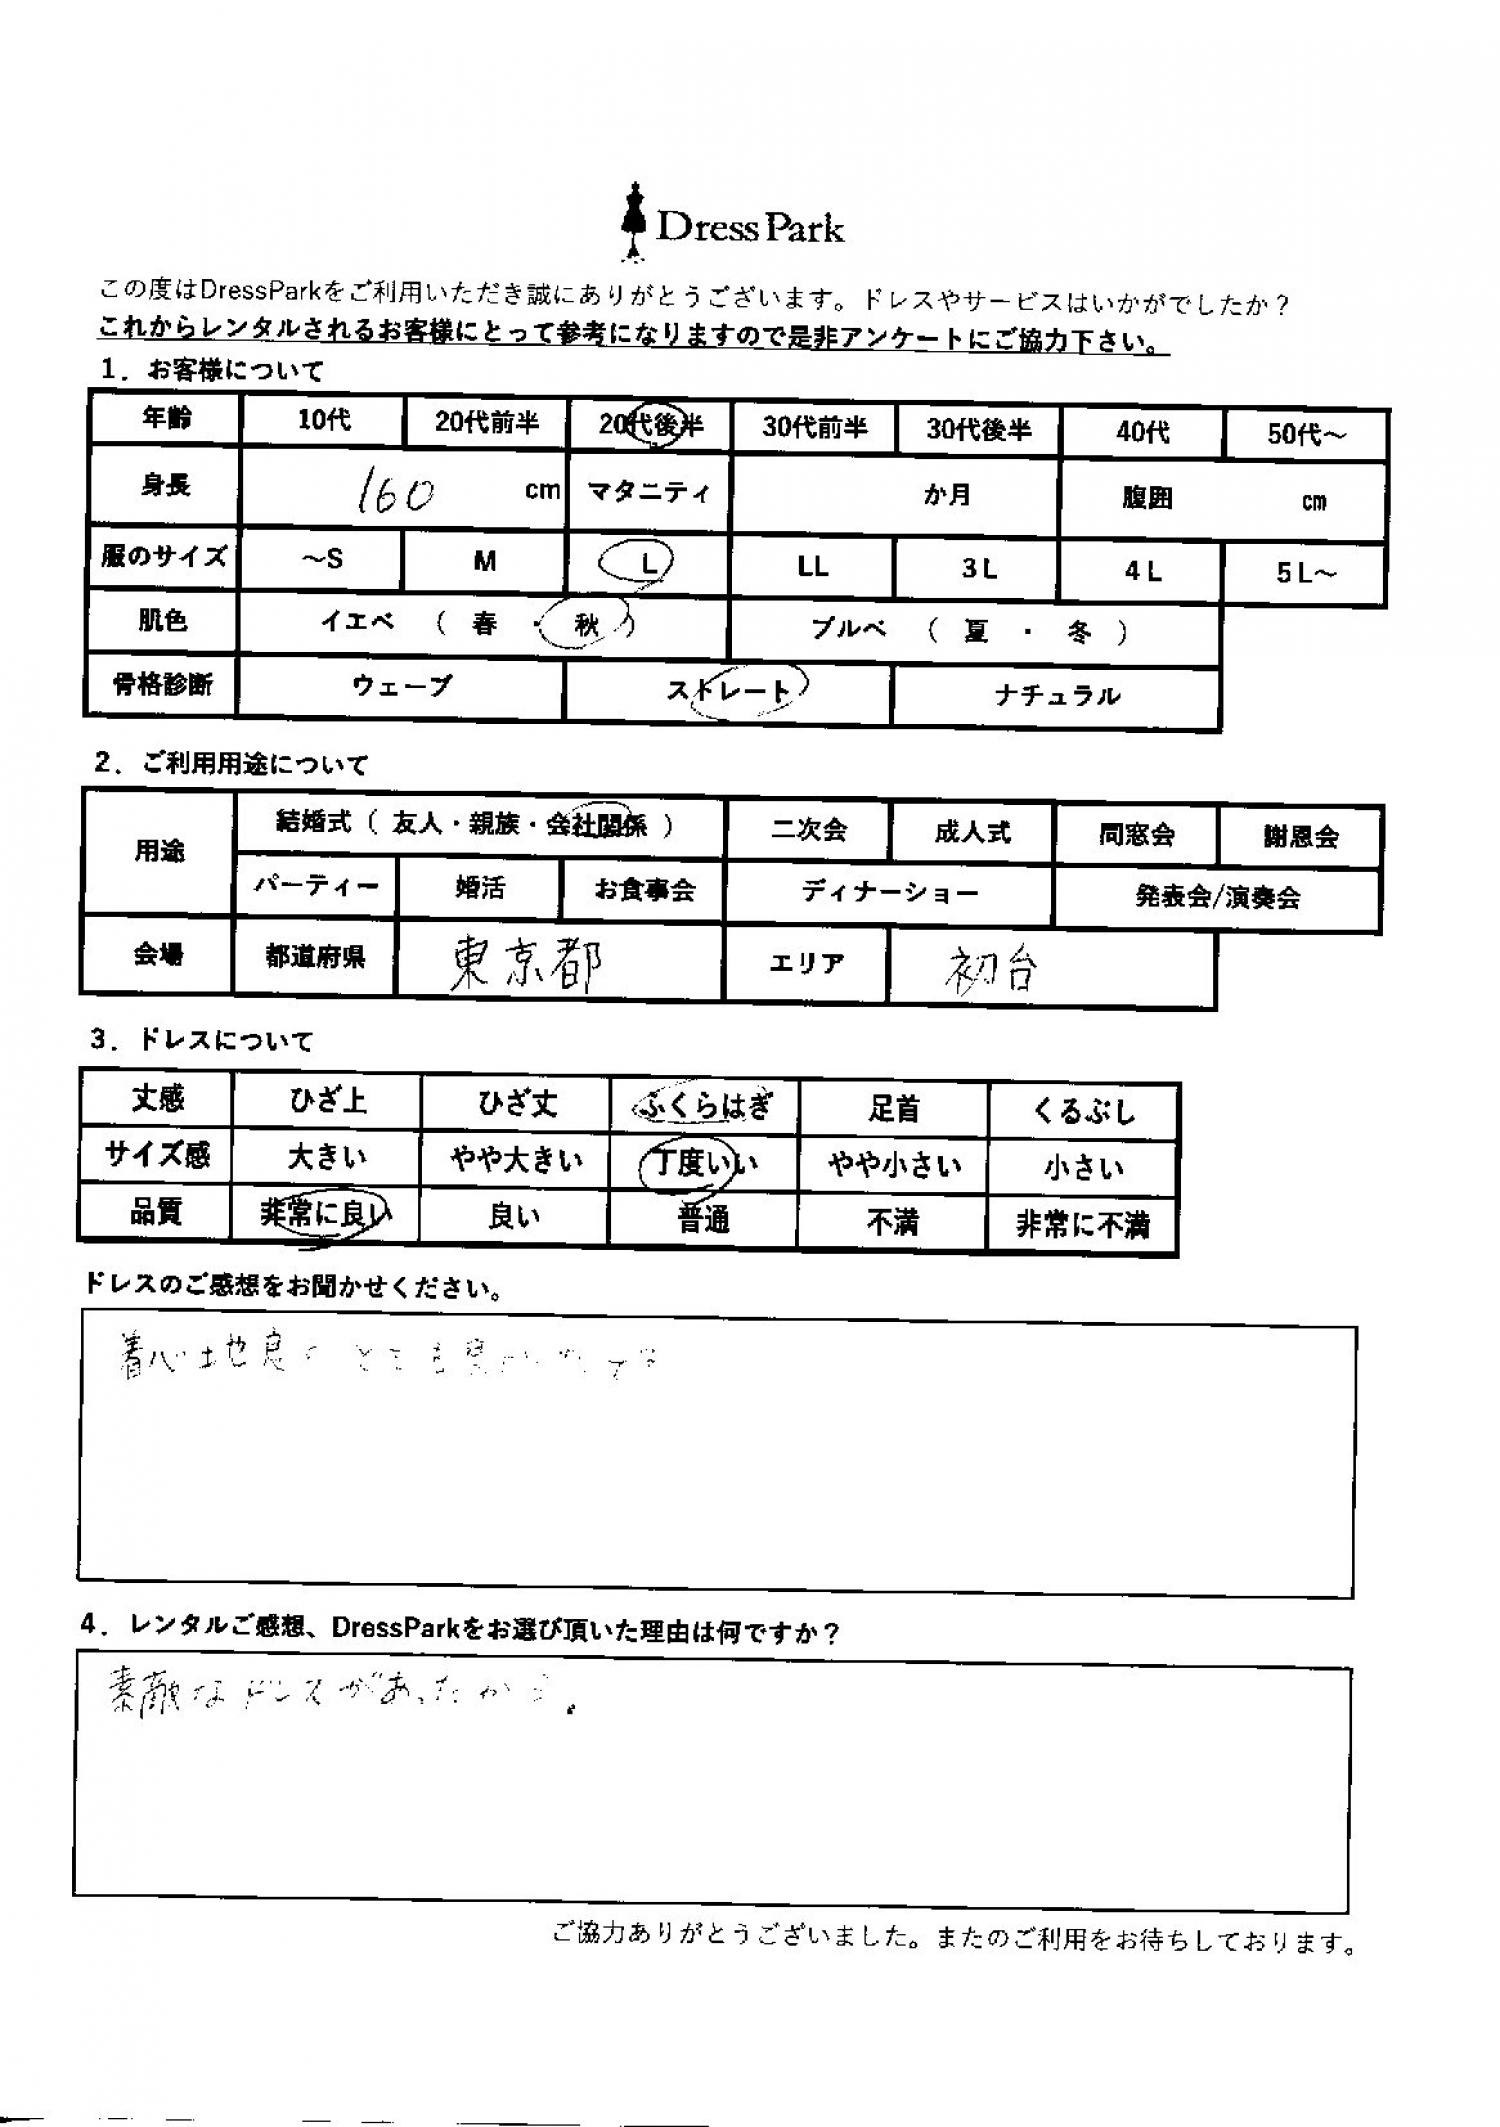 Dress Park
この度はDressParkをご利用いただき誠にありがとうございます。ドレスやサービスはいかがでしたか？
これからレンタルされるお客様にとって参考になりますので是非アンケートにご協力下さい。
1．お客様について
年齢 10代 20代前半 20代後半 30代前半 30代後半 40代 50代～
身長 160 cm マタニティ か月 腹囲 cm
服のサイズ ～S M L LL 3L 4L 5L～
肌色 イエベ （ 春 ・ 秋 ） ブルベ （ 夏 ・ 冬 ）
骨格診断 ウェーブ ストレート ナチュラル
2．ご利用用途について
用途 結婚式（ 友人・親族・会社関係 ） 二次会 成人式 同窓会 謝恩会
パーティー 婚活 お食事会 ディナーショー 発表会/演奏会
会場 都道府県 東京都 エリア 初台
3．ドレスについて
丈感 ひざ上 ひざ丈 ふくらはぎ 足首 くるぶし
サイズ感 大きい やや大きい 丁度いい やや小さい 小さい
品質 非常に良い 良い 普通 不満 非常に不満
ドレスのご感想をお聞かせください。
着心地良く とても良かったです
4．レンタルご感想、DressParkをお選び頂いた理由は何ですか？
素敵なドレスがあったから。
ご協力ありがとうございました。またのご利用をお待ちしております。